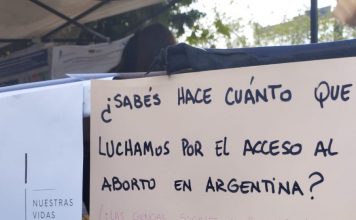 ¿SABÉS HACE CUÁNTO QUE
LUCHAMOS POR EL ACCESO AL
ABORTO EN ARGENTINA?
NUESTRAS
VIDAS